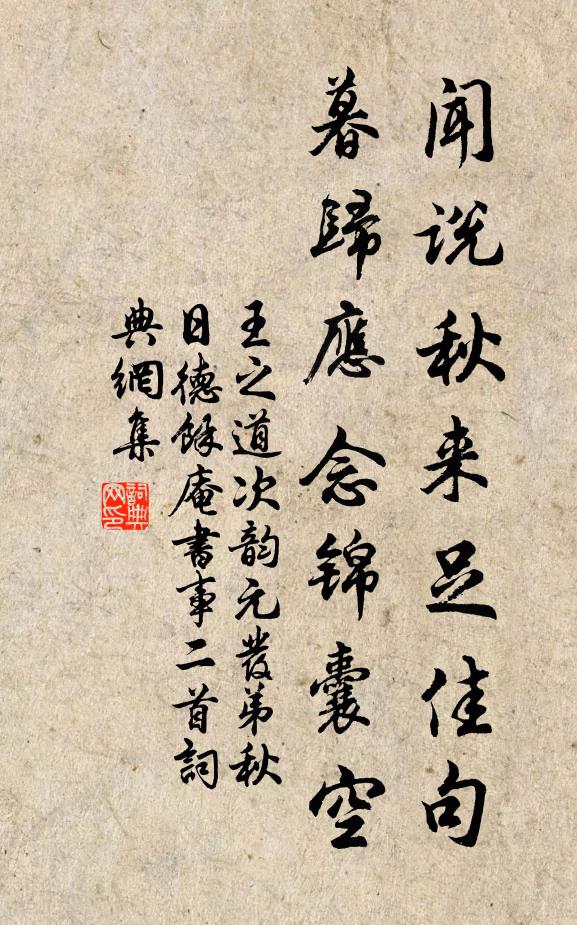 闻说秋来足佳句
暮歸應念锦囊空
王之道次韵元發弟秋
日德餘庵書事二首詞
典網集
詞典
网印